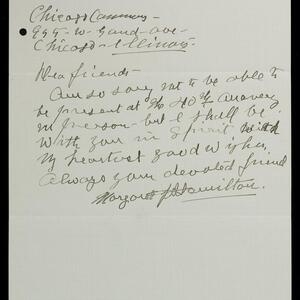 Chicago Commons -
955 - W - Grand - ave -
Chicago - Illinois -
Dear friends -
Am so sorry not to be able to
be present at the 40th
in person - but I shall be
with you in Spirit, with
my heartiest good wishes,
Always your devoted friend
Margaret Hamilton.